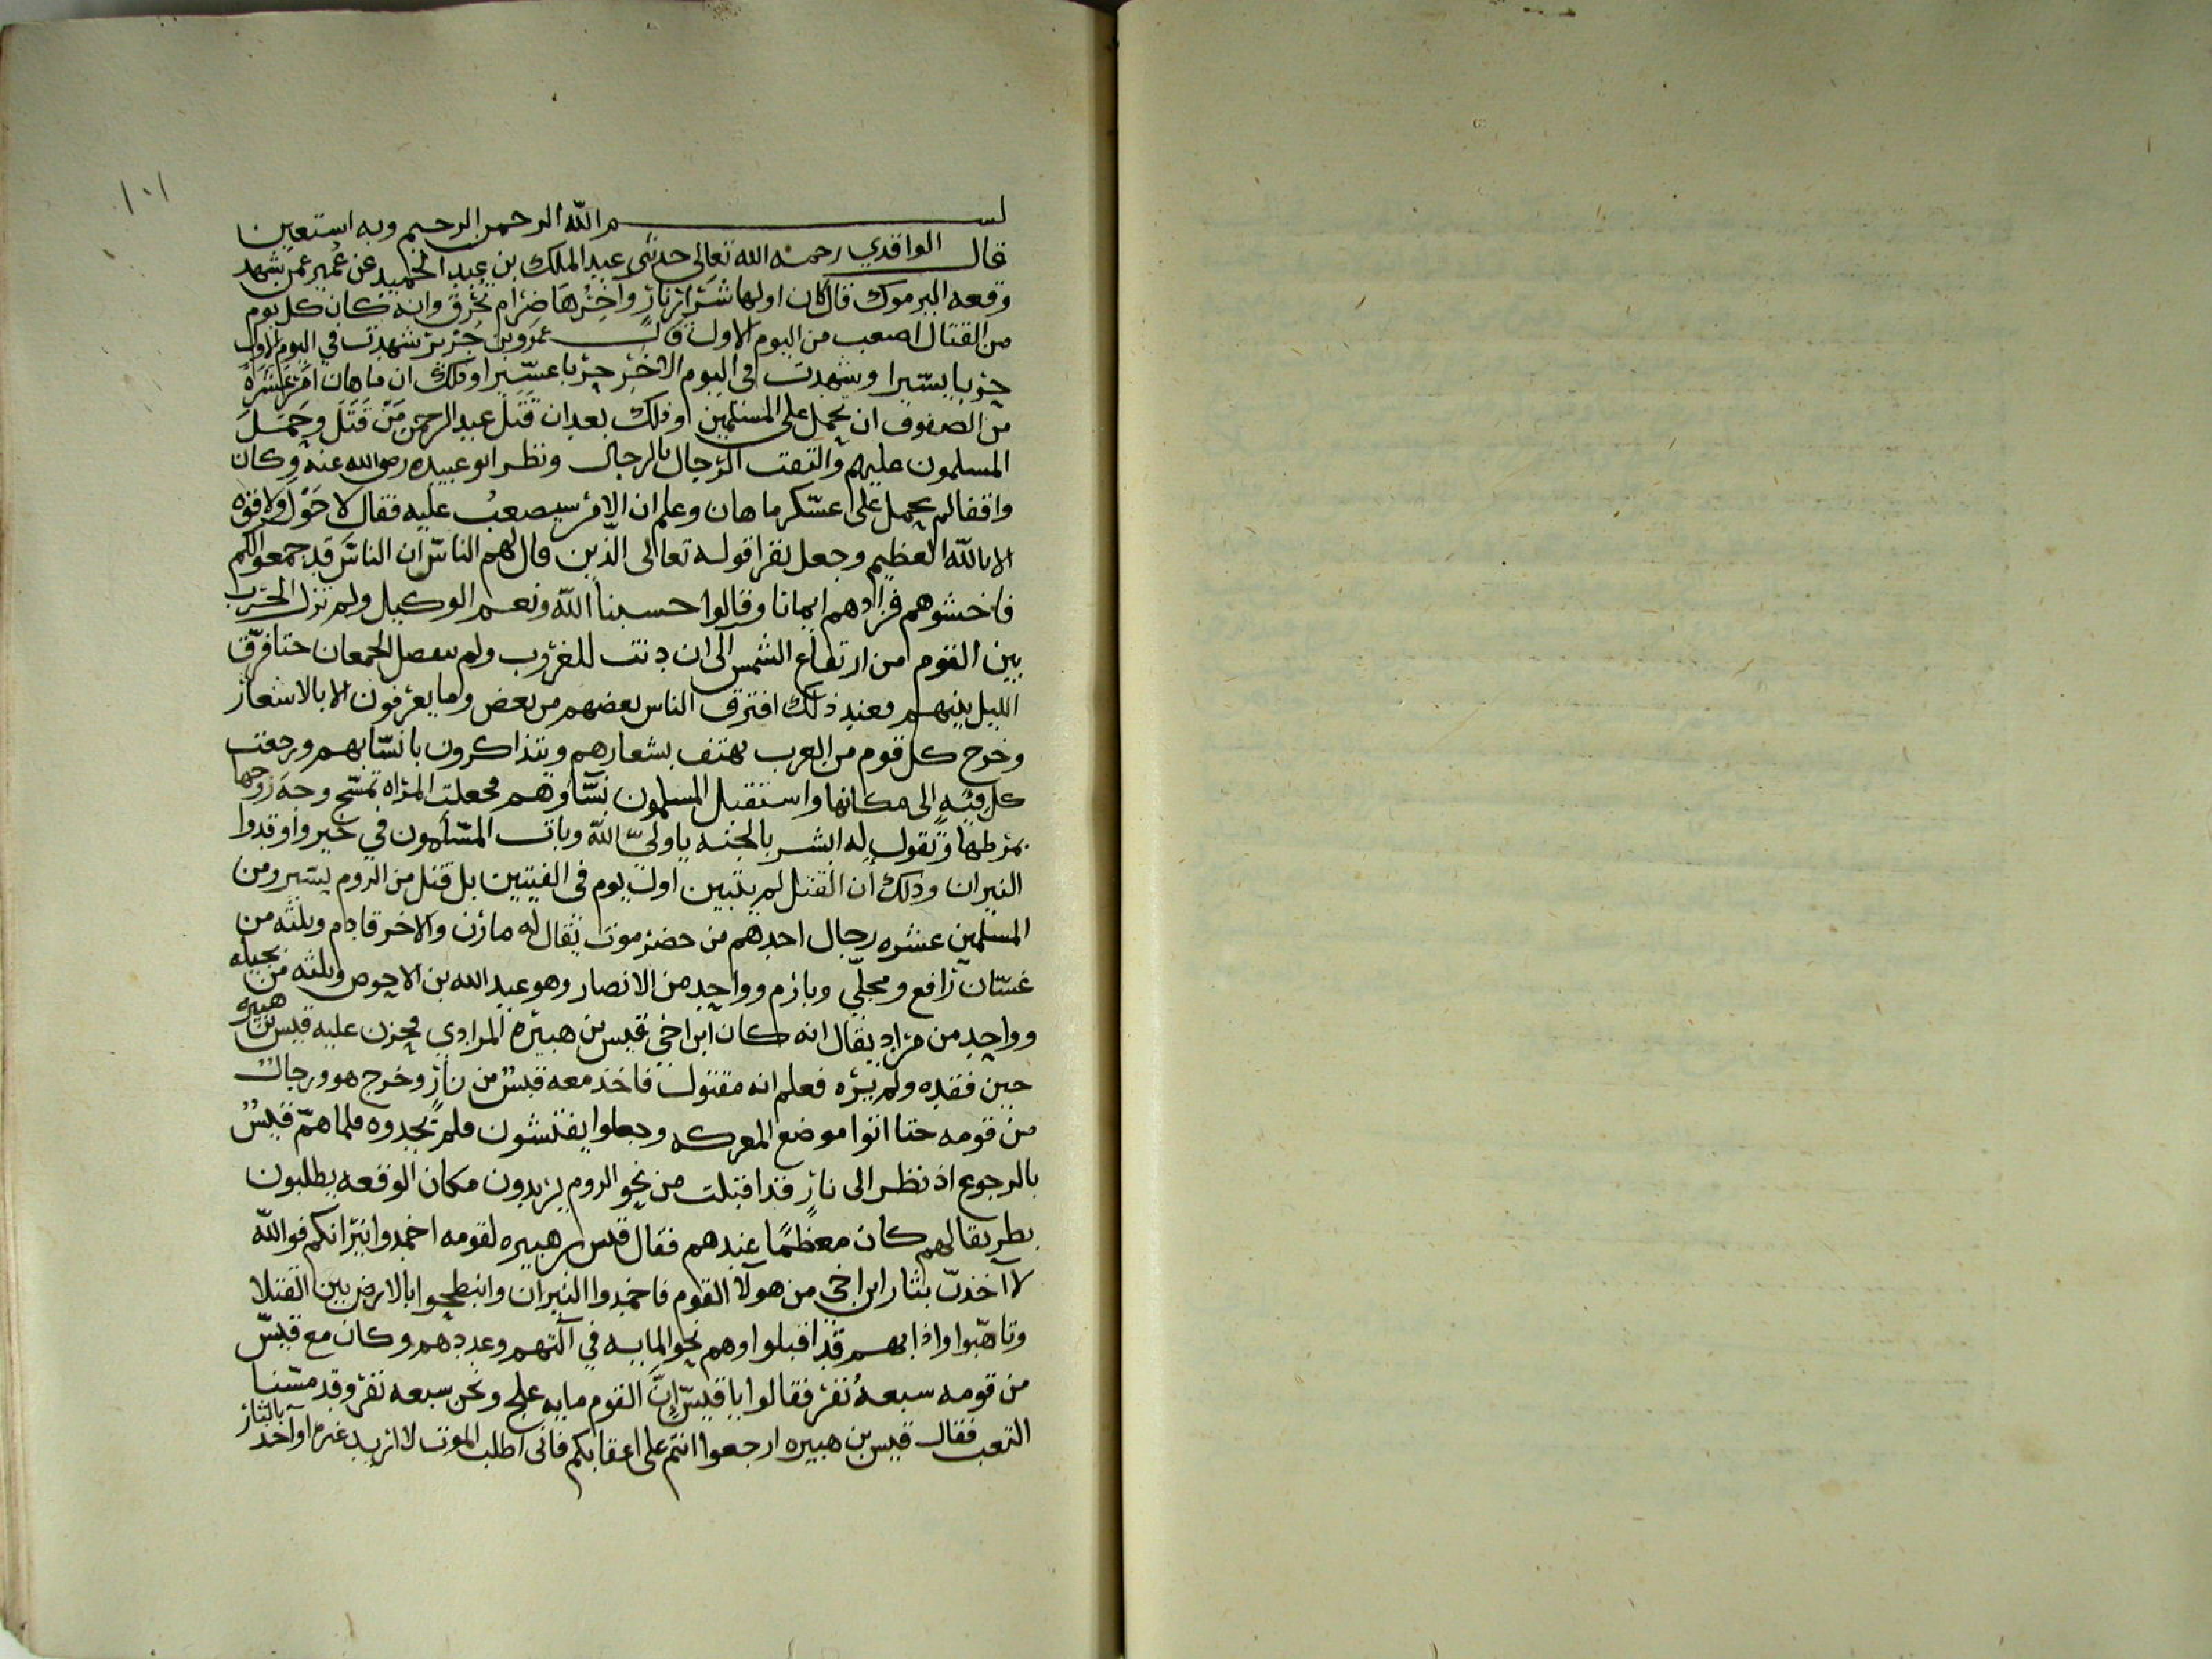 ١٠١
بســـــم الله الرحمن الرحيم وبه استعين
قال الواقدي رحمه الله تعالى حدثني عبد الملك بن عبد الحميد عن عمير عمن شهد
وقعه اليرموك قال كان اولها شرار نار واخرها ضرام تحرق وانه كان كل يوم
من القتال اصعب من اليوم الاول قال عمرو بن جرير شهدت في اليوم الاول
حربا يسيرا وشهدت في اليوم الاخر حربا عسيرا وذلك ان ماهان امر عشره
من الصفوف ان تحمل على المسلمين وذلك بعد ان قتل عبد الرحمن من قتل وحمل
المسلمون عليهم والتقت الرجال بالرجال ونظر ابو عبيده رضي الله عنه وكان
واقفا لم يحمل على عسكر ماهان وعلم ان الامر سيصعب عليه فقال لا حول ولا قوه
الا بالله العظيم وجعل يقرا قوله تعالى الذين قال لهم الناس ان الناس قد جمعوا لكم
فاخشوهم فزادهم ايمانا وقالوا حسبنا الله ونعم الوكيل ولم تزل الحرب
بين القوم من ارتفاع الشمس الى ان دنت للغروب ولم ينفصل الجمعان حتا فرق
الليل بينهم فعند ذلك افترق الناس بعضهم من بعض وما يعرفون الا بالاشعار
وخرج كل قوم من العرب يهتف بشعارهم ويتذاكرون بانسابهم ورجعت
كل فئه الى مكانها واستقبل المسلمون نساوهم فجعلت المراه تمسح وجه زوجها
بمرطها وتقول له ابشر بالجنه يا ولي الله وبات المسلمون في خير واوقدوا
النيران وذلك ان القتل لم يتبين اول يوم في الفيتين بل قتل من الروم يسير ومن
المسلمين عشره رجال احدهم من حضرموت يقال له مازن والاخر قادم وثلثه من
غسان رافع ومجلي وبازم وواحد من الانصار وهو عبد الله بن الاحوص وثلثه من بجيله
وواحد من مراد يقال انه كان ابن اخي قيس بن هبيره المرادي فحزن عليه قيس بن هبيره
حين فقده ولم يره فعلم انه مقتول فاخذ معه قبس من نار وخرج هو ورجال
من قومه حتا اتوا موضع المعركه وجعلوا يفتشون فلم يجدوه فلما هم قيس
بالرجوع اذ نظر الى نار قد اقبلت من نحو الروم يريدون مكان الوقعه يطلبون
بطريقا لهم كان معظما عندهم فقال قيس بن هبيره لقومه اخمدوا نيرانكم فوالله
لا آخذت بثار ابن اخي من هولآ القوم فاخمدوا النيران وانبطحوا بالارض بين القتلا
وتاهبوا واذا بهم قد اقبلوا وهم نحو المايه في آلتهم وعددهم وكان مع قيس
من قومه سبعه نفر فقالوا يا قيس ان القوم مايه علج ونحن سبعه نفر وقد مسنا
التعب فقال قيس بن هبيره ارجعوا انتم على اعقابكم فاني اطلب الموت لا اريد غيره او آخذ بالثار